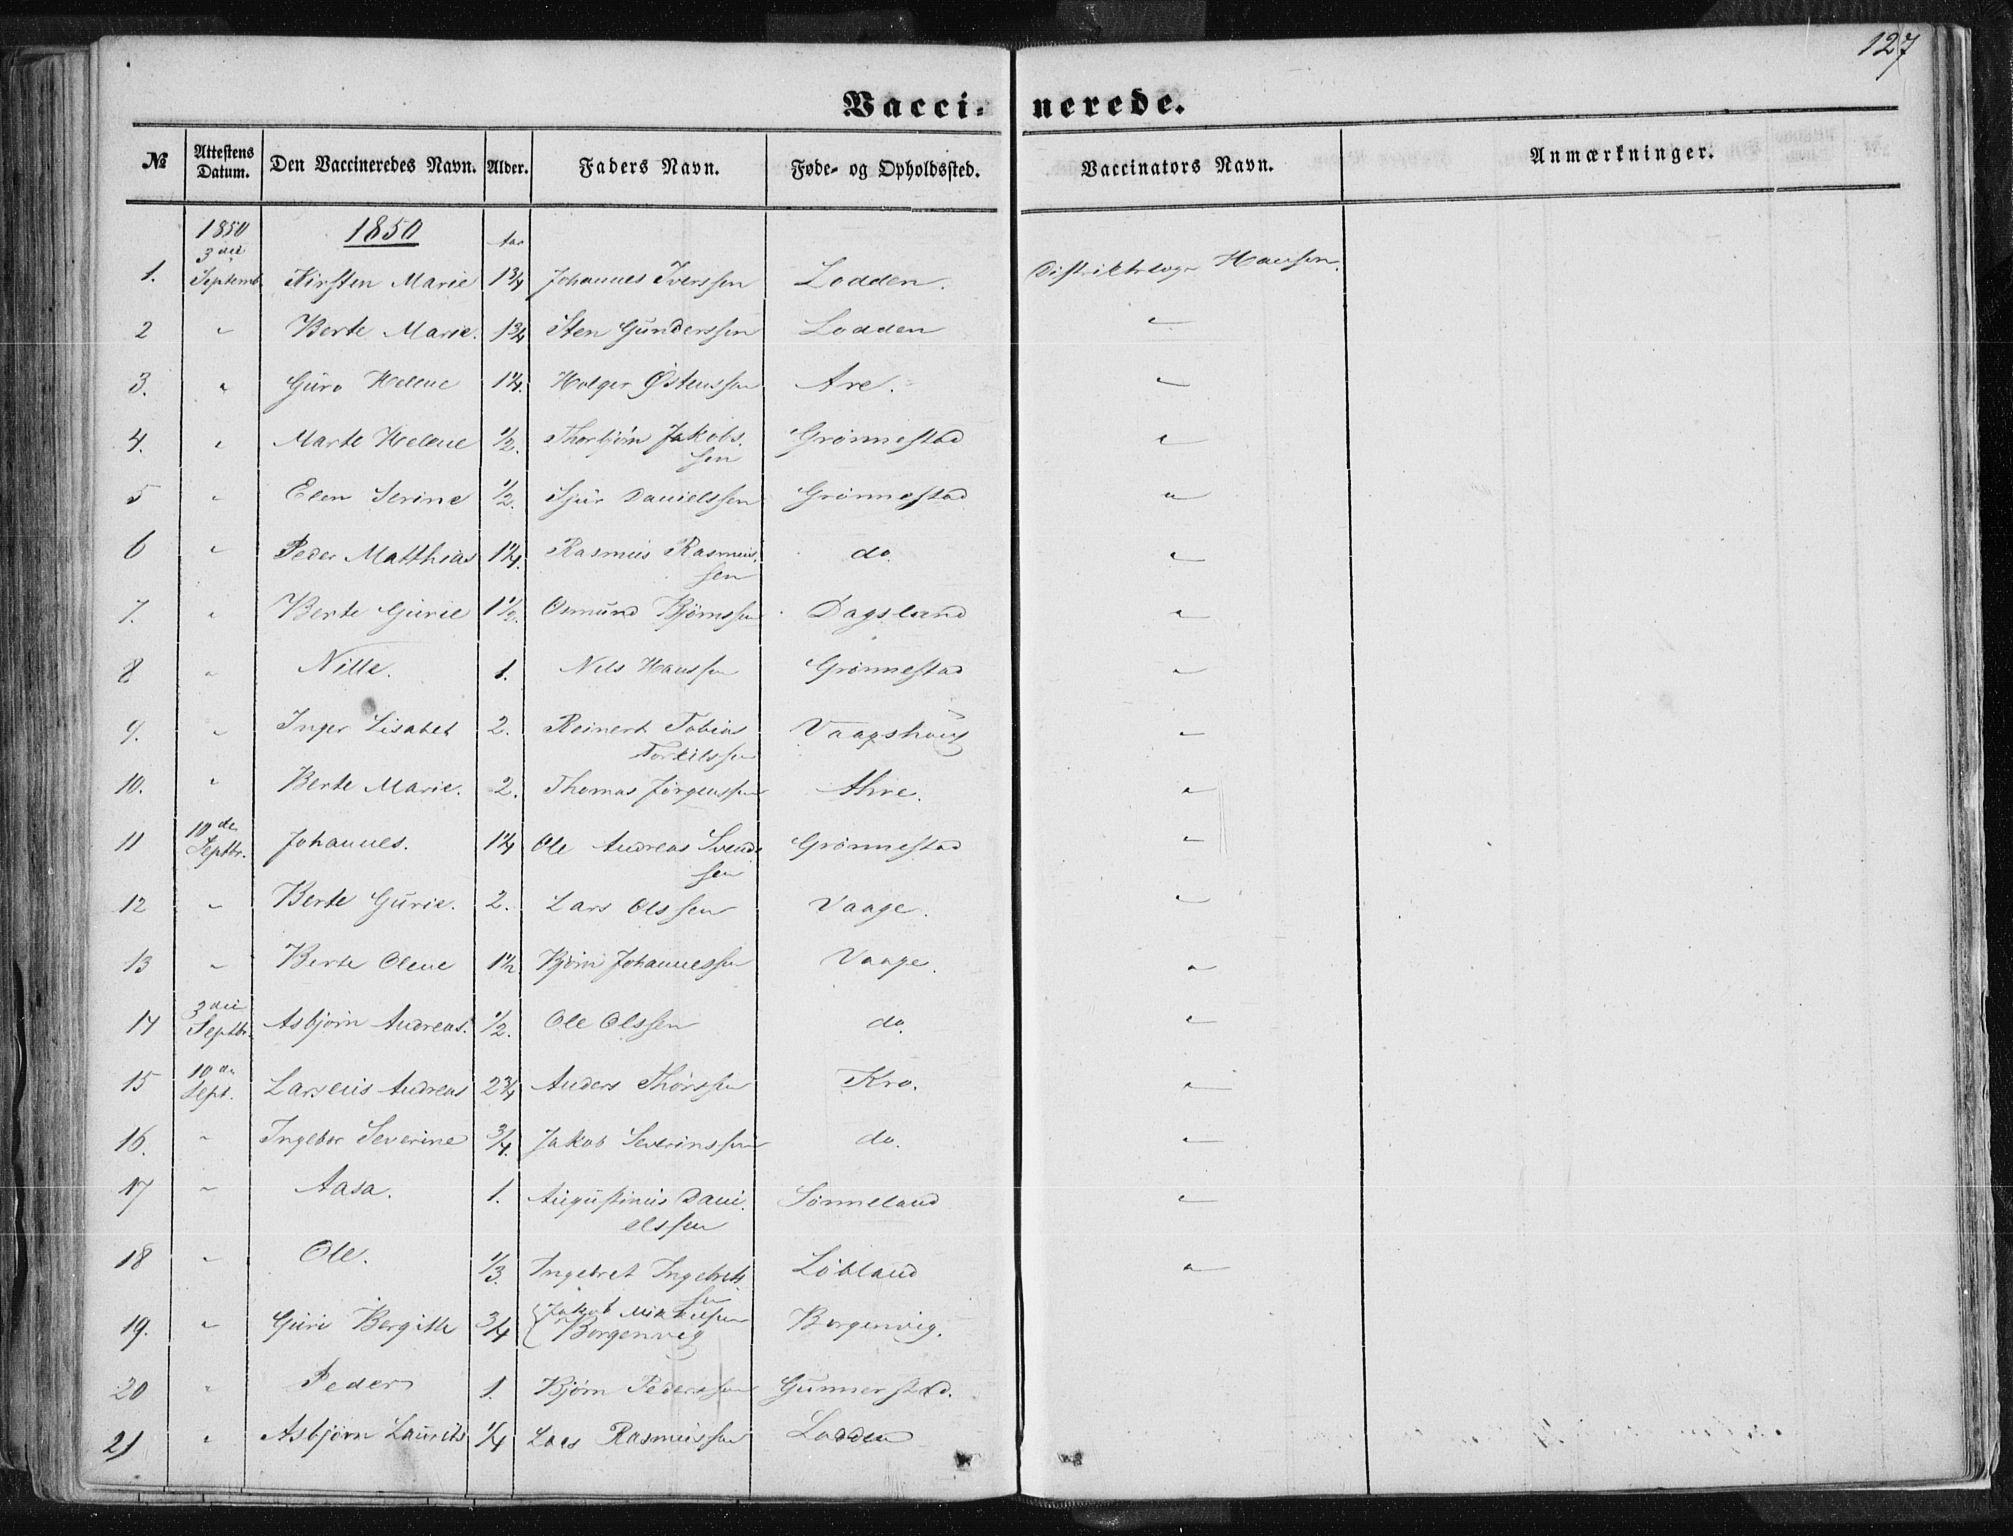 127
Vaccinerede.
№ Attestens Datum. Den Vaccineredes Navn. Alder. Faders Navn. Føde- og Opholdssted. Vaccinators Navn. Anmærkninger.
1850 1850 Aar
1. 3die Septemb. Kirsten Marie 1 3/4 Johannes Iverssen Lodden. Distriktslæge Hansen.
2 " Berte Marie. 1 3/4 Sten Gunderssen Lodden "
3. " Guro Helene 1 1/4. Holger Østenssen Are. "
4. " Marte Helene 1/2. Thorbjørn Jakobs.
sen Grønnestad "
5 " Elen Serine 1/2. Sjur Danielssen Grønnestad "
6 " Peder Matthias 1 1/4. Rasmus Rasmus
sen do. "
7. " Berte Gurie 1 1/2. Osmund Bjørnssen Dagsland "
8 " Nille. 1. Nils Hanssen Grønnestad "
9. " Inger Lisabet 2. Reinert Tobias
Torkilssen Vaagshaug "
10. " Berte Marie. 2. Thomas Jørgenssen Ahre. "
11 10de Septbr. Johannes. 1 1/4 Ole Andreas Svend
sen Grønnestad "
12 " Berte Gurie. 2. Lars Olssen Vaage. "
13 " Berte Olene 1 1/2 Bjørn Johannessen Vaage. "
14 3die Septbr. Asbjørn Andreas. 1/2. Ole Olssen do. "
15 10de Sept. Larseus Andreas 2 3/4 Anders Thorssen Kro. "
16. " Ingebor Severine 3/4. Jakob Severinssen do. "
17 " Aasa. 1. Augustinus Dani.
elssen Sønneland "
18 " Ole. 1/3. Ingebret Ingebrets
sen Løbland "
19. " Guri Bergitte 3/4 Jakob Mikkelsen
Borgenvig Borgenvig.
20 " Peder 1. Bjørn Pederssen Gunnerstad.
21 " Asbjørn Laurits 1/4 Lars Rasmussen Lodden